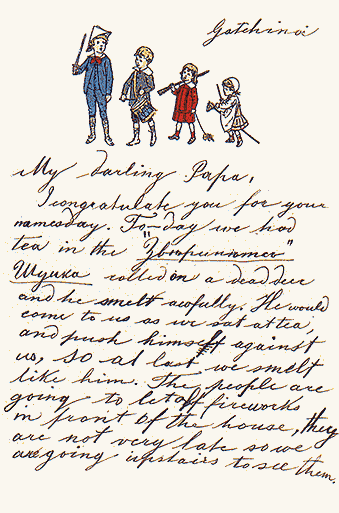 Gatchina
My darling Papa,
I congratulate you for your
namesday. To-day we had
tea in the
rolled on a dead deer
and he smelt awfully. He would
come to us as we sat at tea,
and push himself against
us, so at last we smelt
like him. The people are
going to let off fireworks
in front of the house, they
are not very late so we
are going upstairs to see them.